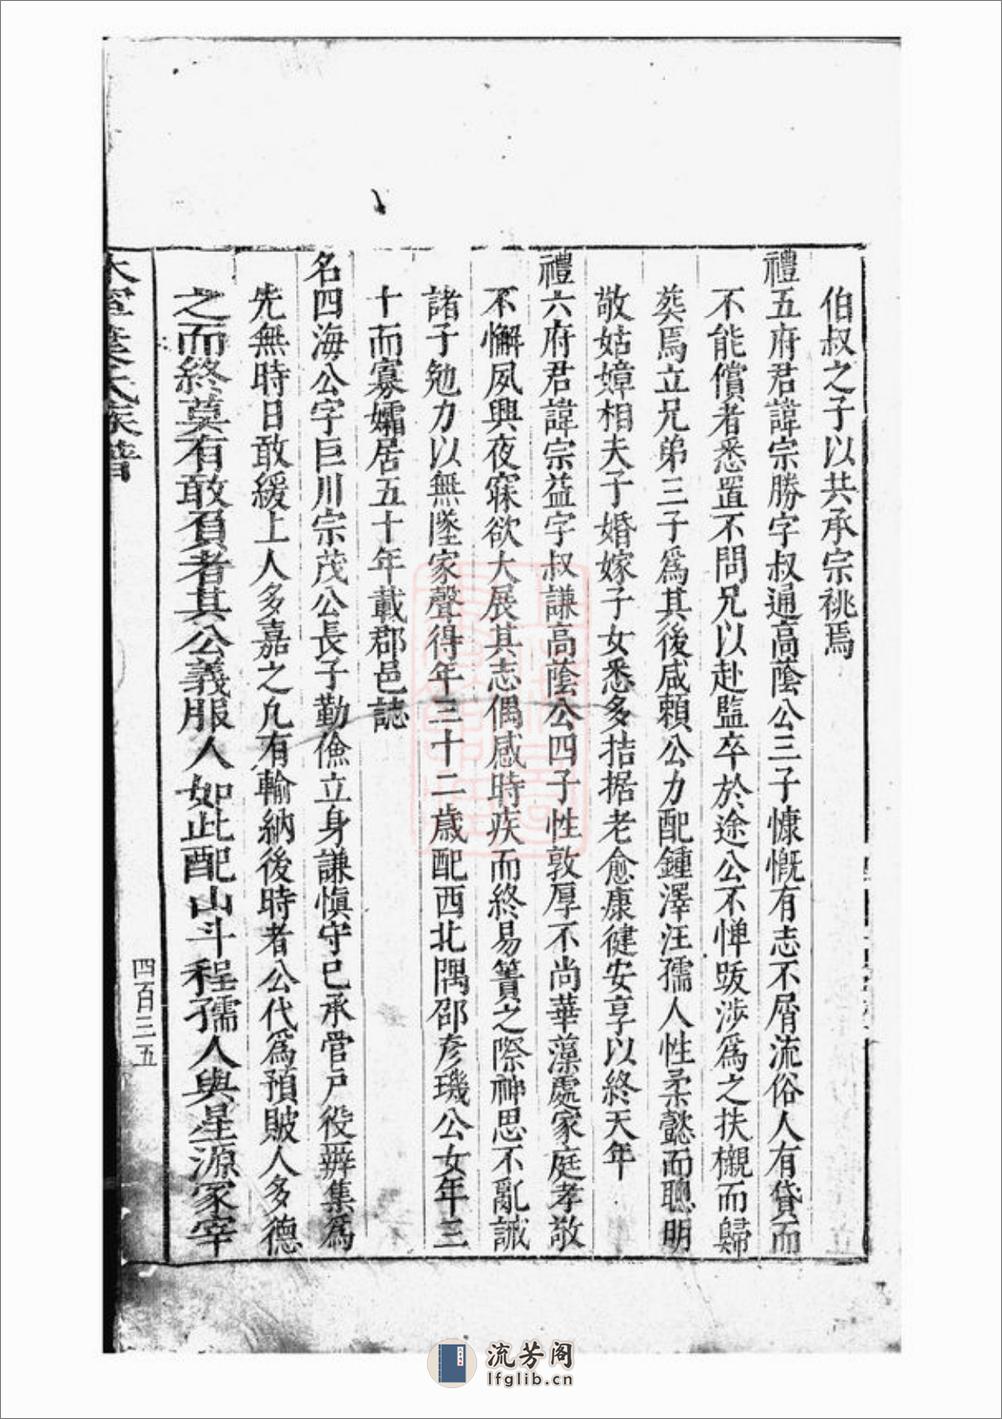 伯叔之子以共承宗祧焉
禮五府君諱宗勝字叔通高蔭公三子慷慨有志不屑流俗人有貸而
不能償者悉置不問兄以赴監卒於途公不憚跋涉爲之扶櫬而歸
葬焉立兄弟三子爲其後咸賴公力配鍾澤汪孺人性柔懿而聰明
敬姑嫜相夫子婚嫁子女悉多拮据老愈康健安享以終天年
禮六府君諱宗益字叔謙高蔭公四子性敦厚不尚華藻處家庭孝敬
不懈夙興夜寐欲大展其志偶感時疾而終易簀之際神思不亂誡
諸子勉力以無墜家聲得年三十二歲配西北隅邵彥璣公女年三
十而寡孀居五十年載郡邑誌
名四海公字巨川宗茂公長子勤儉立身謙慎守己承當戶役辦集爲
先無時日敢緩上人多嘉之凡有輸納後時者公代爲預賠人多德
之而終莫有敢負者其公義服人如此配山斗程孺人與星源冢宰
葉氏族譜
四百三五
流芳阁
lfglib.cn